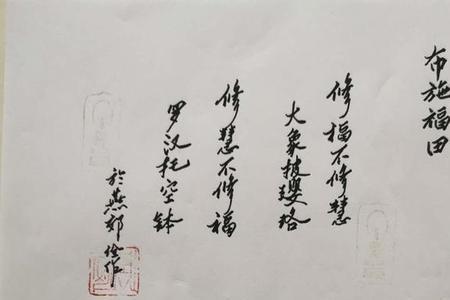 布施福田
修福不修慧
大象披璎珞
修慧不修福
罗汉托空钵
於燕郊